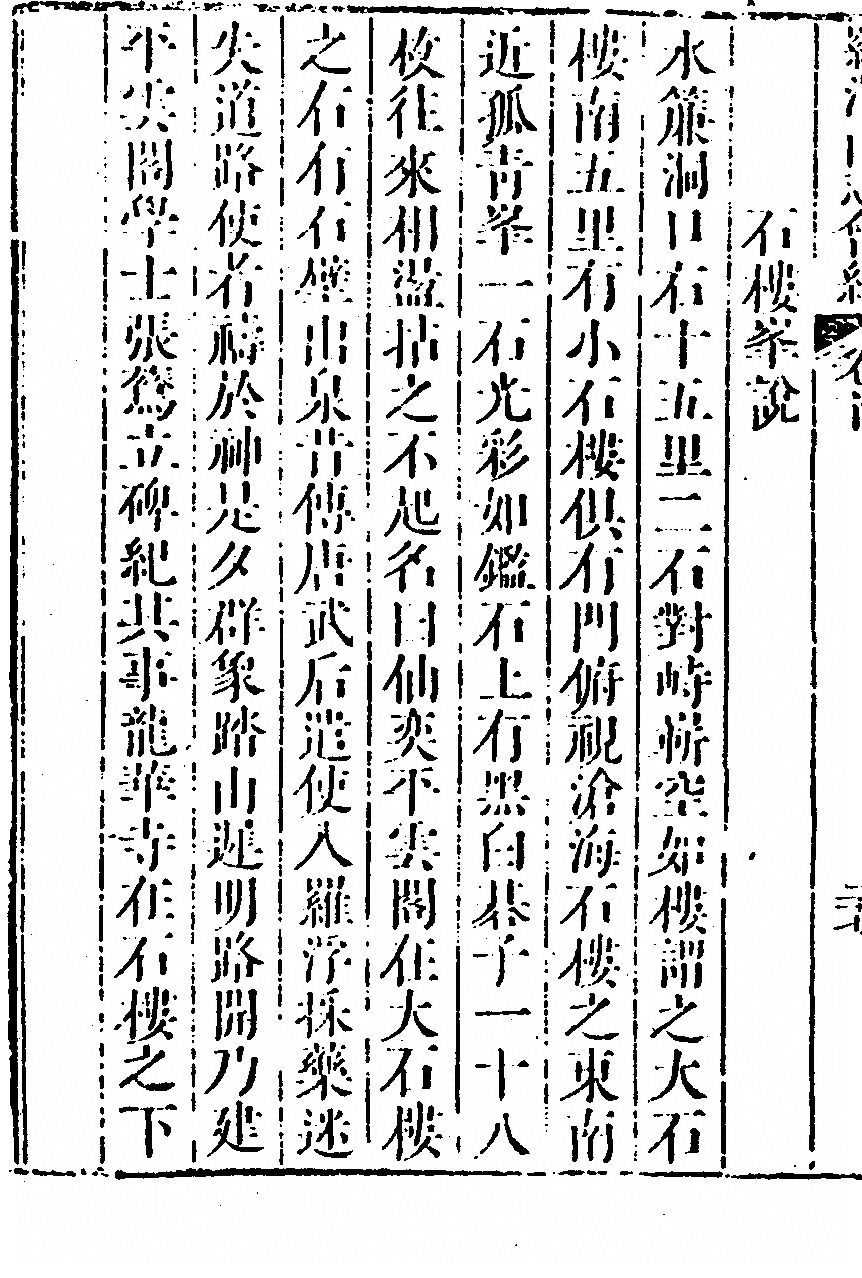 石樓峯說
水簾洞口右十五里二石對峙嶄空如樓謂之大石
樓南五里有小石樓俱有門俯視滄海石樓之東南
近孤青峯一石光彩如鑑石上有黑白碁子一十八
枚往來相盪拈之不起名曰仙奕平雲閣在大石樓
之右有石壁出泉昔傳唐武后遣使入羅浮採藥迷
失道路使者禱於神是夕群象踏山遲明路開乃建
平雲閣學士張鷟立碑紀其事龍華寺在石樓之下